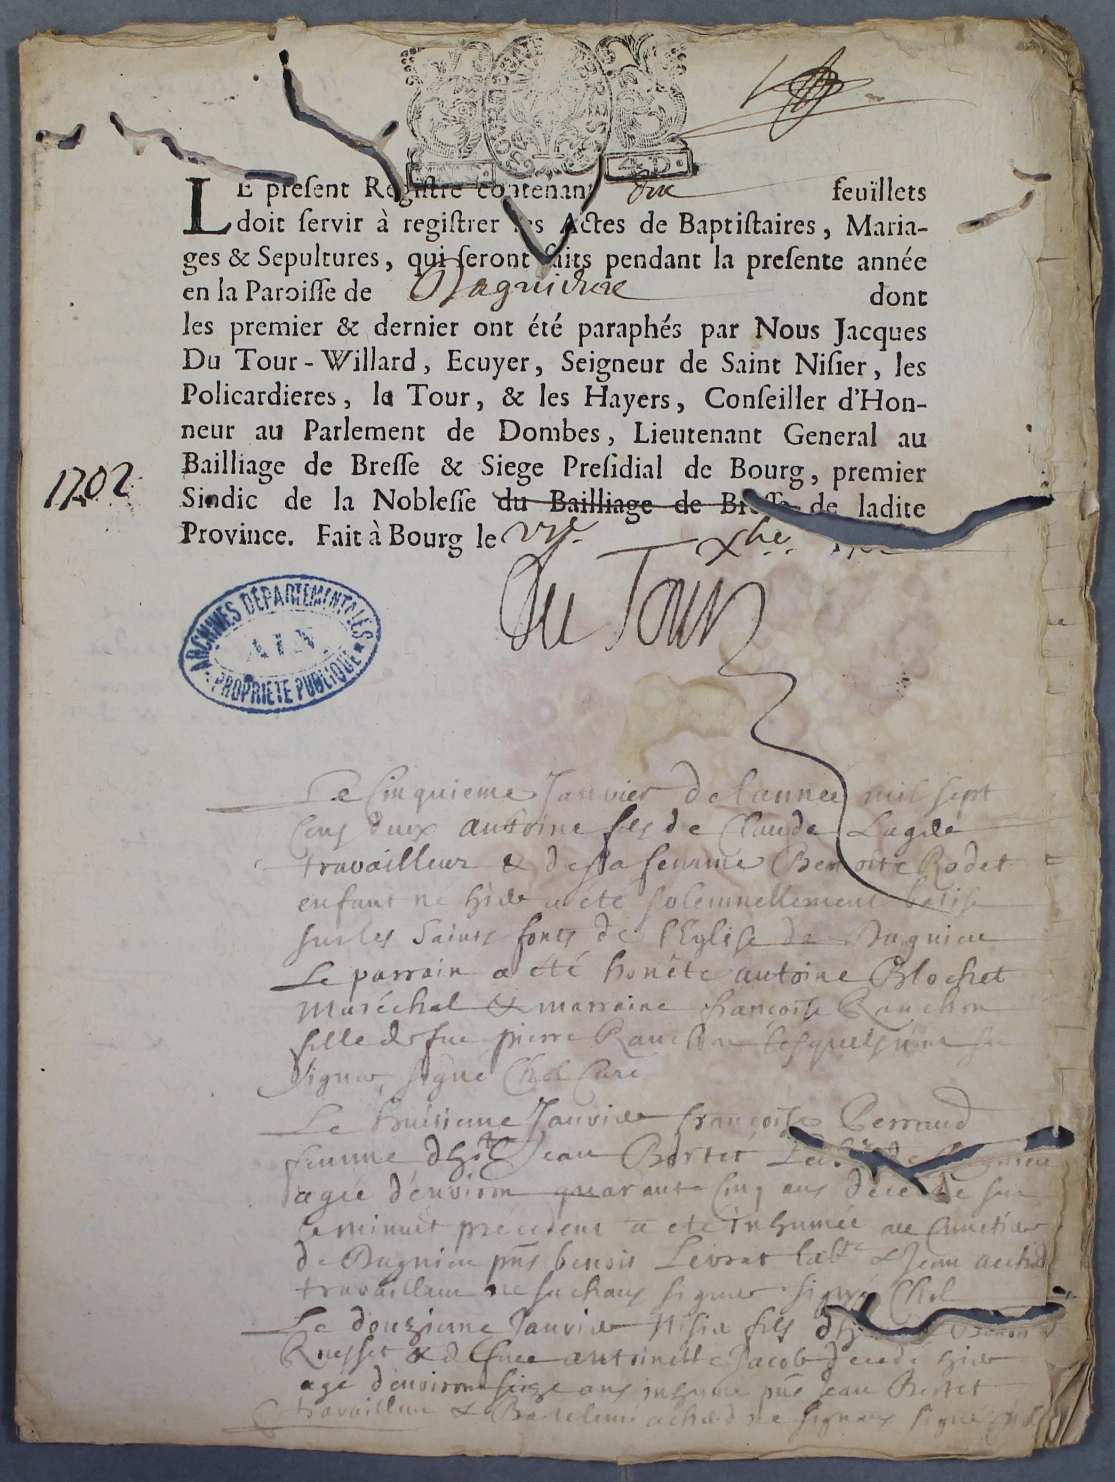 LE present Registre contenant dix feuillets
doit servir à registrer les Actes de Baptistaires, Maria-
ges & Sepultures, qui seront faits pendant la presente année
en la Paroisse de Dagnieu dont
les premier & dernier ont été paraphés par Nous Jacques
Du Tour-Willard, Ecuyer, Seigneur de Saint Nisier, les
Policardieres, la Tour, & les Hayers, Conseiller d'Hon-
neur au Parlement de Dombes, Lieutenant General au
Bailliage de Bresse & Siege Presidial de Bourg, premier
1702
Sindic de la Noblesse du Bailliage de Bresse de ladite
Province. Fait à Bourg le Xbre
Du Tour
ARCHIVES DÉPARTEMENTALES
AIN
PROPRIÉTÉ PUBLIQUE
Le Cinquieme Janvier de lannée mil sept
cens deux antoine fils de Claude Lagde
travailleur & de sa femme Benoite Rodet
enfant né hier a été solemnellement batisé
sur les Saints fonts de l'Eglise de Dagnieu
Le parrain a été honête antoine Blochet
Maréchal & marraine françoise Ranchon
fille de fue pierre Ranchon lesquels nont su
signer, signé Chol Curé
Le huitieme Janvier françoise Perraud
femme d'h. Jean Bortet de Dagnieu
agée d'environ quarante cinq ans decedée sur
le minuit precedent a été inhumée au Cimetiere
de Dagnieu pns benois Levrat labr & Jean
travailleur ne sachans signer signé Chol
Le douzieme Janvier Nisié fils
& de fuee antoinette Jacob decedé hier
agé d'environ seize ans inhumé pns Jean Bertet
travailleur & Bartelemi ne signans signé Chol